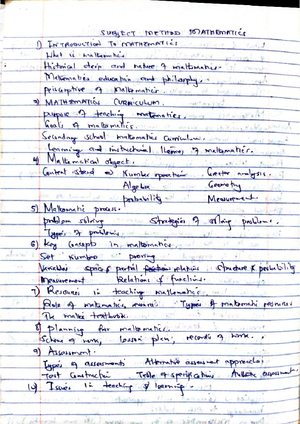 SUBJECT METHOD MATHEMATICS
1) INTRODUCTION TO MATHEMATICS
What is mathematics
Historical deep and nature of mathematics.
Mathematics education and philosophy.
perspective of Mathematics.
2) MATHEMATICS CURRICULUM.
purpose of teaching mathematics.
Goals of mathematics.
Secondary school mathematics Curriculum.
Learning and instructional theories of mathematics.
4) Mathematical object.
Content strand Number operation
Algebra Geometry
probability Measurement.
5) Mathematic process.
problem solving Strategies of solving problems.
Types of problems.
6) Key Concepts in mathematics.
Set Number proving
Variables relations Structure of probability
measurement Relations & functions.
7) Resources in teaching Mathematics.
Role of mathematics Types of mathematic resources.
The maths textbook.
8) planning for mathematics.
Scheme of work, lesson plan, records of work.
9) Assessment.
Types of assessments Alternative assessment approaches
Test Construction Table of specification assessment.
10) Issues in teaching & learning.